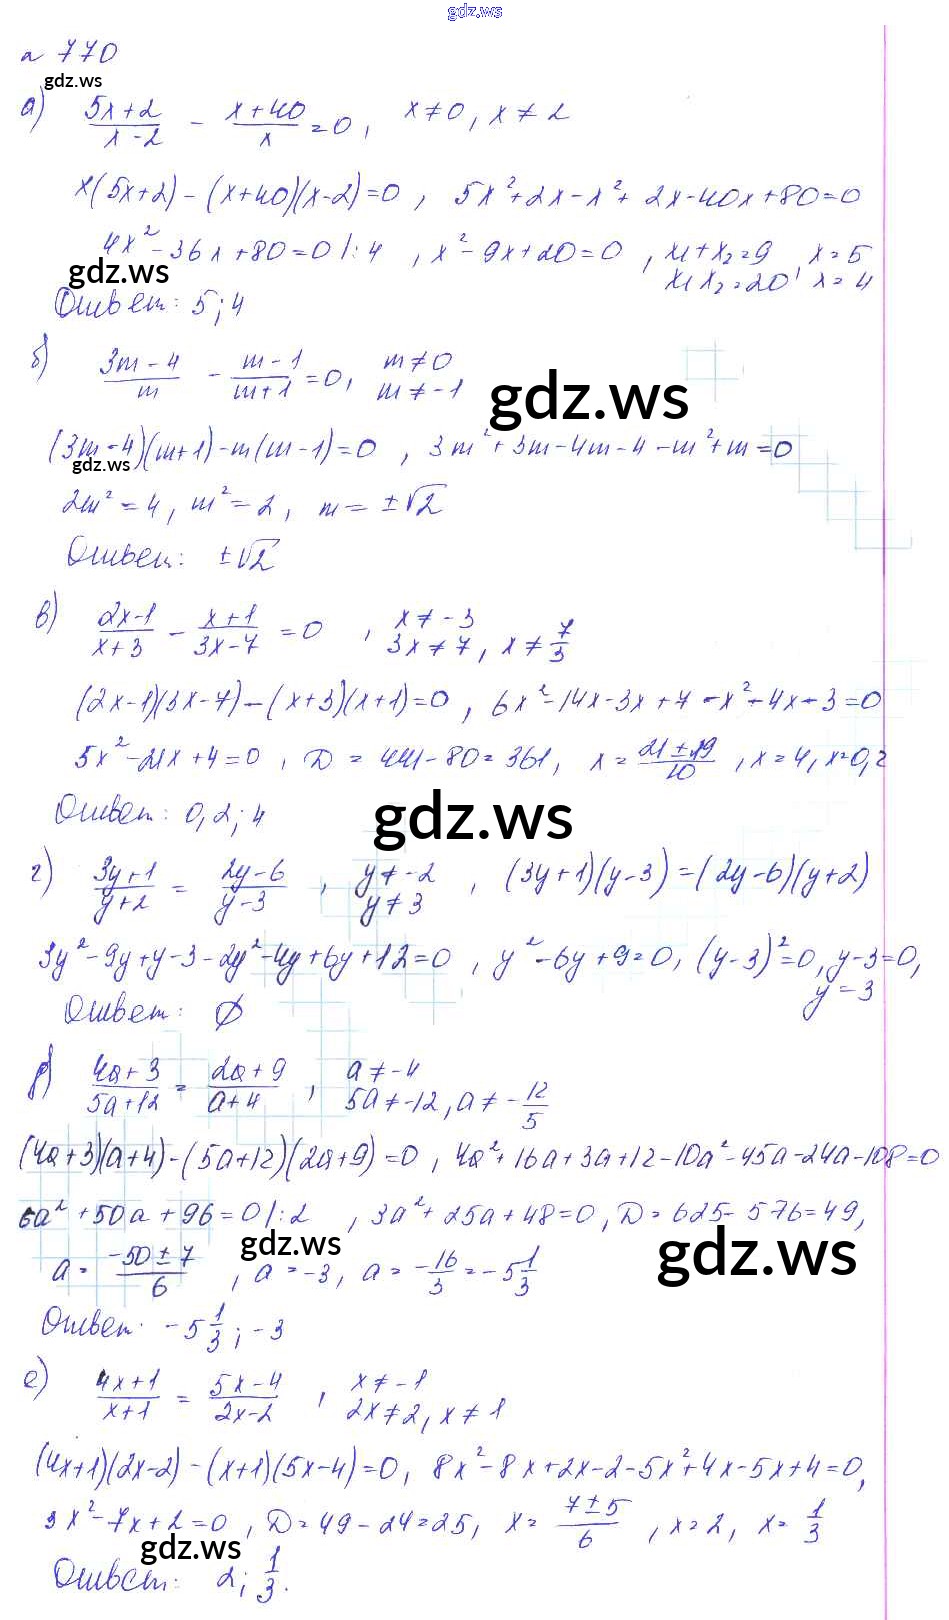 gdz.ws
№ 770
gdz.ws
а) (5x+2)/(x-2) - (x+40)/x = 0, x≠0, x≠2
x(5x+2)-(x+40)(x-2)=0, 5x²+2x-x²+2x-40x+80=0
4x²-36x+80=0 |:4, x²-9x+20=0, x₁+x₂=9, x=5
x₁x₂=20, x=4
gdz.ws
Ответ: 5; 4
б) (3m-4)/m - (m-1)/(m+1) = 0, m≠0
m≠-1
gdz.ws
(3m-4)(m+1)-m(m-1)=0, 3m²+3m-4m-4-m²+m=0
gdz.ws
2m²=4, m²=2, m=±√2
Ответ: ±√2
в) (2x-1)/(x+3) - (x+1)/(3x-7) = 0, x≠-3
3x≠7, x≠7/3
(2x-1)(3x-7)-(x+3)(x+1)=0, 6x²-14x-3x+7-x²-4x-3=0
5x²-21x+4=0, D=441-80=361, x=(21±19)/10, x=4, x=0,2
Ответ: 0,2; 4
gdz.ws
г) (3y+1)/(y+2) = (2y-6)/(y-3), y≠-2, (3y+1)(y-3)=(2y-6)(y+2)
y≠3
3y²-9y+y-3-2y²-4y+6y+12=0, y²-6y+9=0, (y-3)²=0, y-3=0,
y=3
Ответ: Ø
д) (4a+3)/(5a+12) = (2a+9)/(a+4), a≠-4
5a≠-12, a≠-12/5
(4a+3)(a+4)-(5a+12)(2a+9)=0, 4a²+16a+3a+12-10a²-45a-24a-108=0
6a²+50a+96=0 |:2, 3a²+25a+48=0, D=625-576=49,
gdz.ws
gdz.ws
a=(-50±7)/6, a=-3, a=-16/3=-5 1/3
Ответ: -5 1/3; -3
е) (4x+1)/(x+1) = (5x-4)/(2x-2), x≠-1
2x≠2, x≠1
(4x+1)(2x-2)-(x+1)(5x-4)=0, 8x²-8x+2x-2-5x²+4x-5x+4=0,
3x²-7x+2=0, D=49-24=25, x=(7±5)/6, x=2, x=1/3
gdz.ws
Ответ: 2; 1/3.